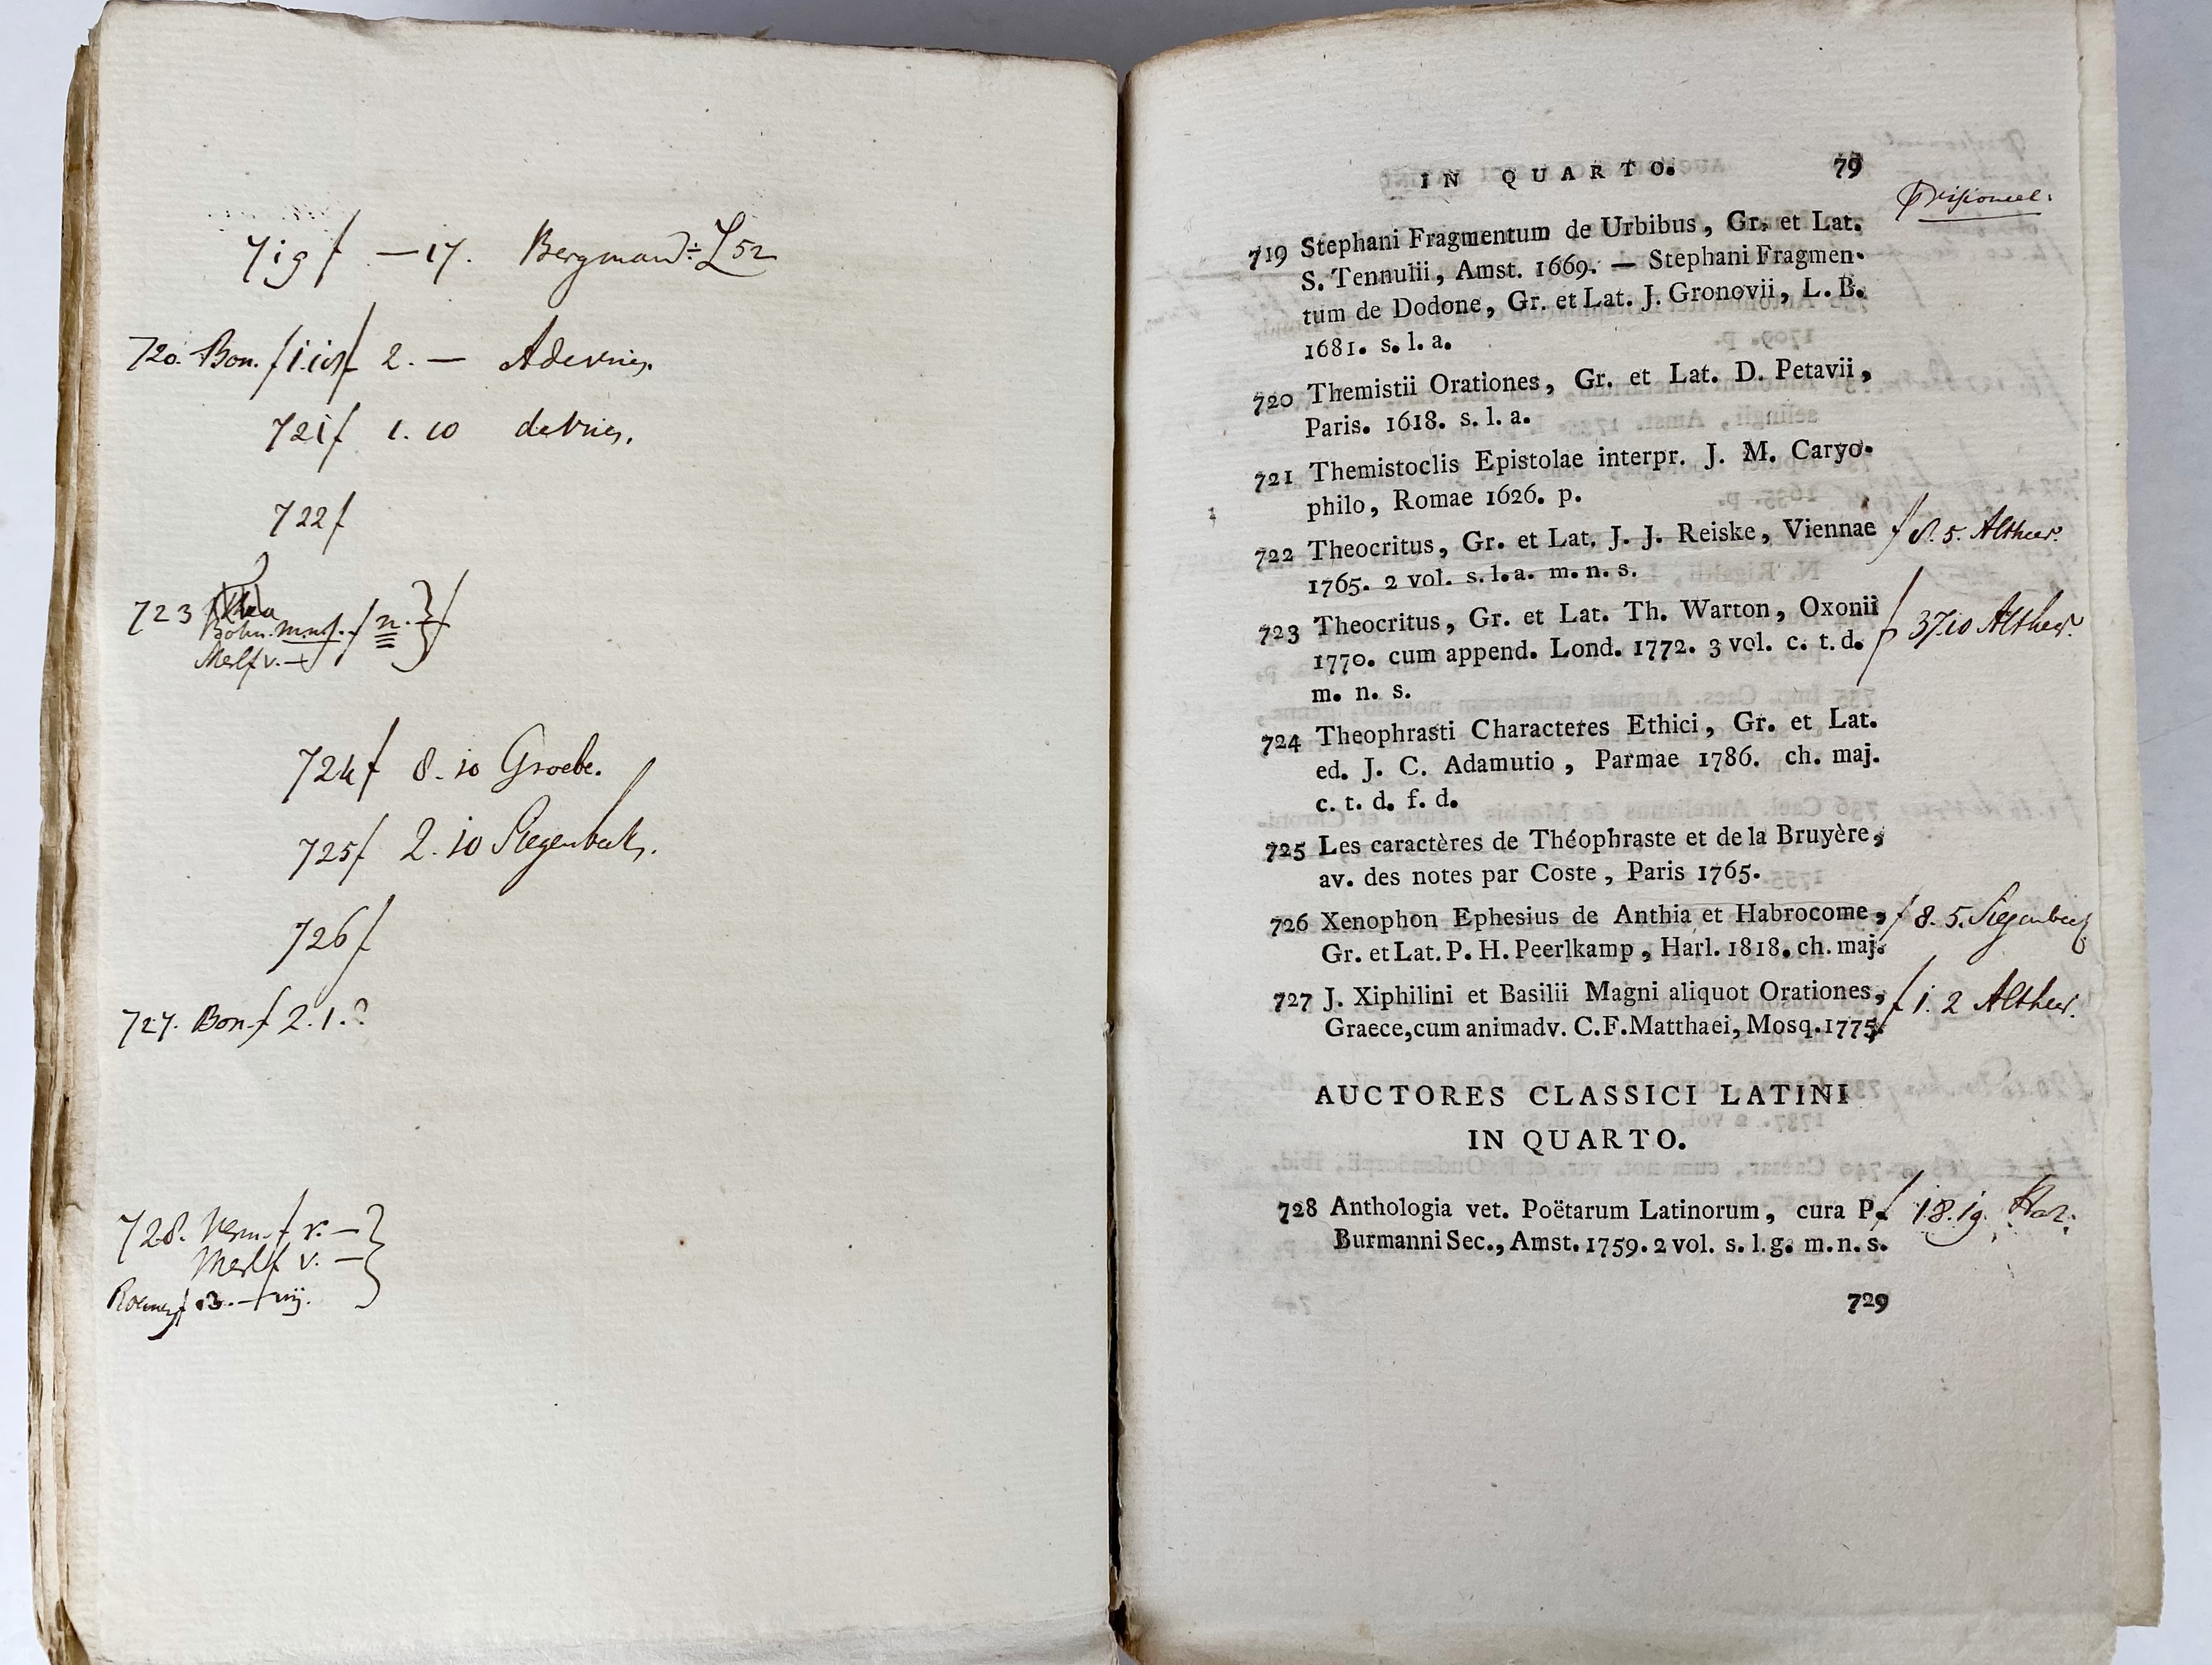 719 f — 17. Bergman ÷ L 52
720. Bon. f 1.10 f 2. — A devries.
721 f 1. 10 devries.
722 f
723
Bohn. m.n.s. f n. } f
Merl f v. —
724 f 8. 10 Groebe.
725 f 2. 10 Siegenbeek.
726 f
727. Bon. f 2. 1.
728. f v. — }
Merl f v. —
IN QUARTO. 79
719 Stephani Fragmentum de Urbibus, Gr. et Lat.
S. Tennulii, Amst. 1669. — Stephani Fragmen-
tum de Dodone, Gr. et Lat. J. Gronovii, L. B.
1681. s. l. a.
720 Themistii Orationes, Gr. et Lat. D. Petavii,
Paris. 1618. s. l. a.
721 Themistoclis Epistolae interpr. J. M. Caryo-
philo, Romae 1626. p.
722 Theocritus, Gr. et Lat. J. J. Reiske, Viennae f 8. 5. Altheer.
1765. 2 vol. s. l. a. m. n. s.
723 Theocritus, Gr. et Lat. Th. Warton, Oxonii f 37.10 Altheer.
1770. cum append. Lond. 1772. 3 vol. c. t. d.
m. n. s.
724 Theophrasti Characteres Ethici, Gr. et Lat.
ed. J. C. Adamutio, Parmae 1786. ch. maj.
c. t. d. f. d.
725 Les caractères de Théophraste et de la Bruyère,
av. des notes par Coste, Paris 1765.
726 Xenophon Ephesius de Anthia et Habrocome, f 8. 5. Siegenbeek
Gr. et Lat. P. H. Peerlkamp, Harl. 1818. ch. maj.
727 J. Xiphilini et Basilii Magni aliquot Orationes, f 1. 2 Altheer.
Graece, cum animadv. C. F. Matthaei, Mosq. 1775.
AUCTORES CLASSICI LATINI
IN QUARTO.
728 Anthologia vet. Poëtarum Latinorum, cura P. f 18. 19.
Burmanni Sec., Amst. 1759. 2 vol. s. l. g. m. n. s.
729